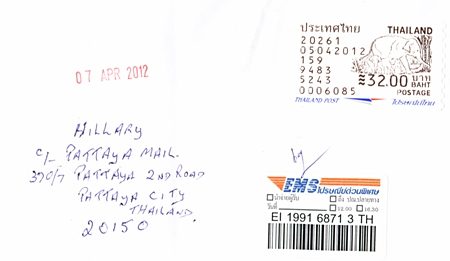 ประเทศไทย THAILAND
20261
05042012
159
9483
5243
0006085
≈32.00 บาท
BAHT
POSTAGE
THAILAND POST ไปรษณีย์ไทย
07 APR 2012
HILLARY
c/- PATTAYA MAIL.
370/7 PATTAYA 2ND ROAD
PATTAYA CITY
THAILAND.
20150
EMS ไปรษณีย์ด่วนพิเศษ
นำจ่ายผู้รับ ถึง ปณ.ปลายทาง
วันที่ 12.00 16.30
EI 1991 6871 3 TH